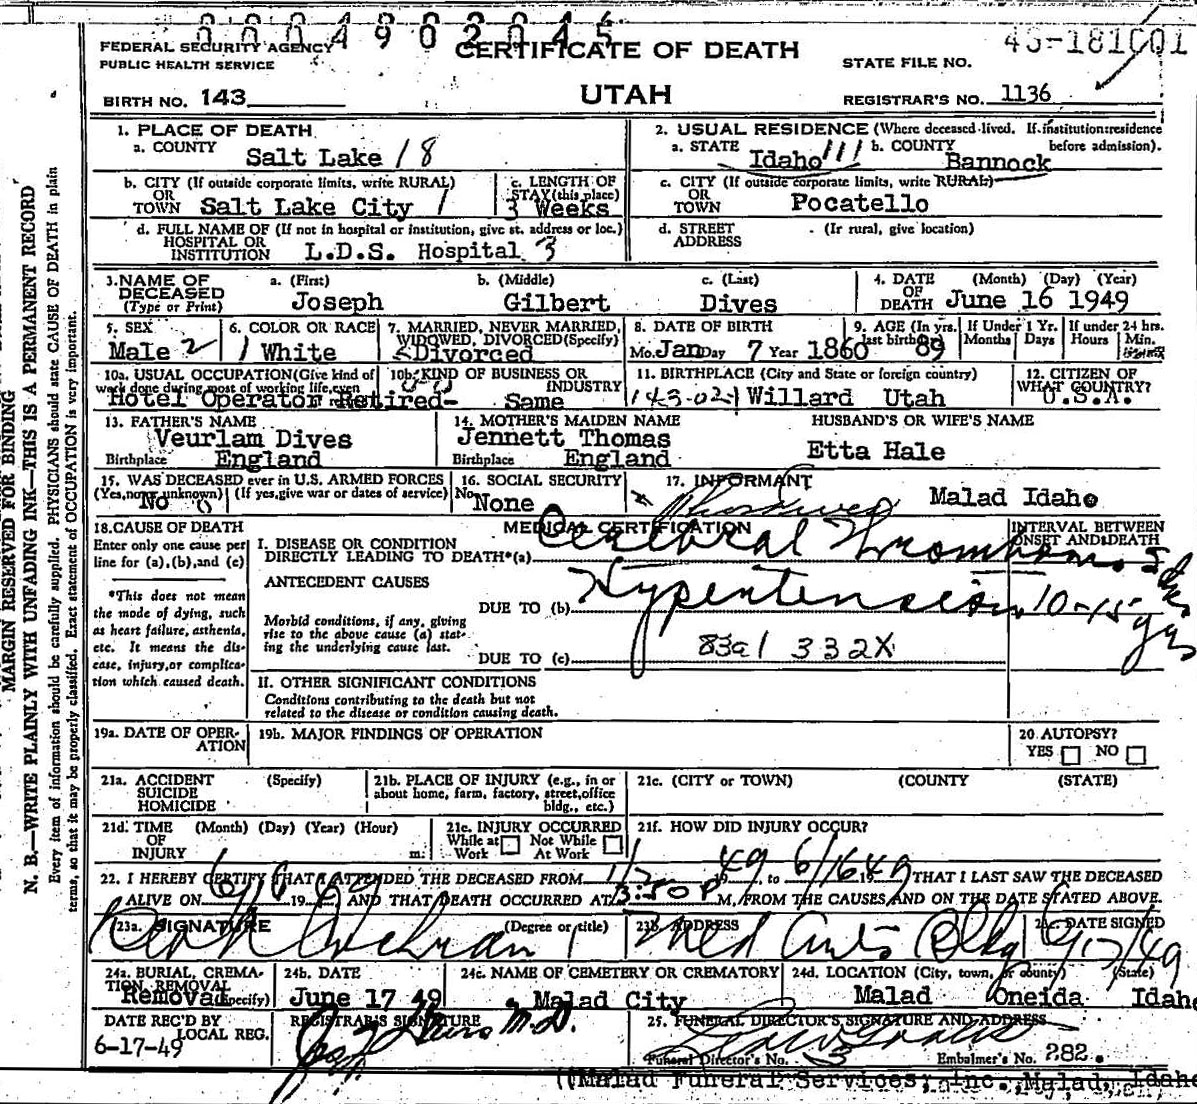 0004902045
FEDERAL SECURITY AGENCY
PUBLIC HEALTH SERVICE
CERTIFICATE OF DEATH
STATE FILE NO.
BIRTH NO. 143
UTAH
REGISTRAR'S NO. 1136
1. PLACE OF DEATH
a. COUNTY Salt Lake 18
2. USUAL RESIDENCE (Where deceased lived. If institution: residence before admission).
a. STATE Idaho b. COUNTY Bannock
b. CITY (If outside corporate limits, write RURAL)
OR TOWN Salt Lake City 1
c. LENGTH OF STAY (this place)
3 Weeks
c. CITY (If outside corporate limits, write RURAL)
OR TOWN Pocatello
d. FULL NAME OF (If not in hospital or institution, give st. address or loc.)
HOSPITAL OR INSTITUTION L.D.S. Hospital 3
d. STREET ADDRESS (If rural, give location)
3. NAME OF DECEASED (Type or Print)
a. (First) b. (Middle) c. (Last)
Joseph Gilbert Dives
4. DATE OF DEATH (Month) (Day) (Year)
June 16 1949
5. SEX
Male 2
6. COLOR OR RACE
1 White
7. MARRIED, NEVER MARRIED, WIDOWED, DIVORCED (Specify)
Divorced
8. DATE OF BIRTH
Mo. Jan Day 7 Year 1860
9. AGE (In yrs. last birthday) 89
If Under 1 Yr. Months Days
If under 24 hrs. Hours Min.
10a. USUAL OCCUPATION (Give kind of work done during most of working life, even if retired)
Hotel Operator Retired-
10b. KIND OF BUSINESS OR INDUSTRY
Same
11. BIRTHPLACE (City and State or foreign country)
143-02 Willard Utah
12. CITIZEN OF WHAT COUNTRY?
U.S.A.
13. FATHER'S NAME
Veurlam Dives
Birthplace England
14. MOTHER'S MAIDEN NAME
Jennett Thomas
Birthplace England
HUSBAND'S OR WIFE'S NAME
Etta Hale
15. WAS DECEASED ever in U.S. ARMED FORCES
(Yes, no, or unknown) (If yes, give war or dates of service)
No 0
16. SOCIAL SECURITY
No. None
17. INFORMANT
Malad Idaho
18. CAUSE OF DEATH
Enter only one cause per line for (a), (b), and (c)
*This does not mean the mode of dying, such as heart failure, asthenia, etc. It means the disease, injury, or complication which caused death.
MEDICAL CERTIFICATION
INTERVAL BETWEEN ONSET AND DEATH
I. DISEASE OR CONDITION
DIRECTLY LEADING TO DEATH*(a) Cerebral Thrombosis
ANTECEDENT CAUSES
DUE TO (b) Hypertension 10-15 yrs
Morbid conditions, if any, giving rise to the above cause (a) stating the underlying cause last.
DUE TO (c) 83a1 332X
II. OTHER SIGNIFICANT CONDITIONS
Conditions contributing to the death but not related to the disease or condition causing death.
19a. DATE OF OPERATION
19b. MAJOR FINDINGS OF OPERATION
20. AUTOPSY?
YES NO
21a. ACCIDENT SUICIDE HOMICIDE (Specify)
21b. PLACE OF INJURY (e.g., in or about home, farm, factory, street, office bldg., etc.)
21c. (CITY or TOWN) (COUNTY) (STATE)
21d. TIME OF INJURY (Month) (Day) (Year) (Hour) m.
21e. INJURY OCCURRED
While at Work Not While At Work
21f. HOW DID INJURY OCCUR?
22. I HEREBY CERTIFY THAT I ATTENDED THE DECEASED FROM 1949, to 6/16 1949 THAT I LAST SAW THE DECEASED
ALIVE ON 6/16 1949 AND THAT DEATH OCCURRED AT 3:50 P M, FROM THE CAUSES AND ON THE DATE STATED ABOVE.
23a. SIGNATURE (Degree or title)
Cochran
23b. ADDRESS
Med Arts Bldg
23c. DATE SIGNED
6/17/49
24a. BURIAL, CREMATION, REMOVAL (Specify)
Removal
24b. DATE
June 17 49
24c. NAME OF CEMETERY OR CREMATORY
Malad City
24d. LOCATION (City, town, or county) (State)
Malad Oneida Idaho
DATE REC'D BY LOCAL REG.
6-17-49
REGISTRAR'S SIGNATURE
M.D.
25. FUNERAL DIRECTOR'S SIGNATURE AND ADDRESS
Funeral Director's No. 3 Embalmer's No. 282.
(Malad Funeral Services, Inc. Malad, Idaho
MARGIN RESERVED FOR BINDING
N. B.—WRITE PLAINLY WITH UNFADING INK—THIS IS A PERMANENT RECORD
Every item of information should be carefully supplied. PHYSICIANS should state CAUSE OF DEATH in plain
terms, so that it may be properly classified. Exact statement of OCCUPATION is very important.